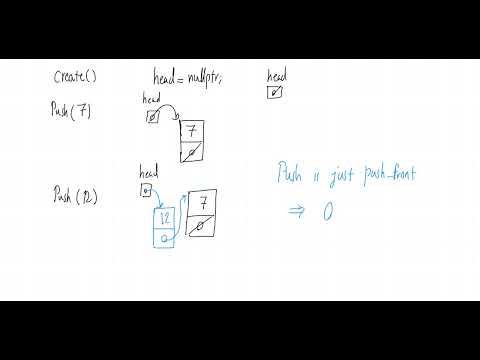 Create() head = nullptr; head
Push(7) head
7
head
Push(12) 12 7
Push is just push_front
⇒ O